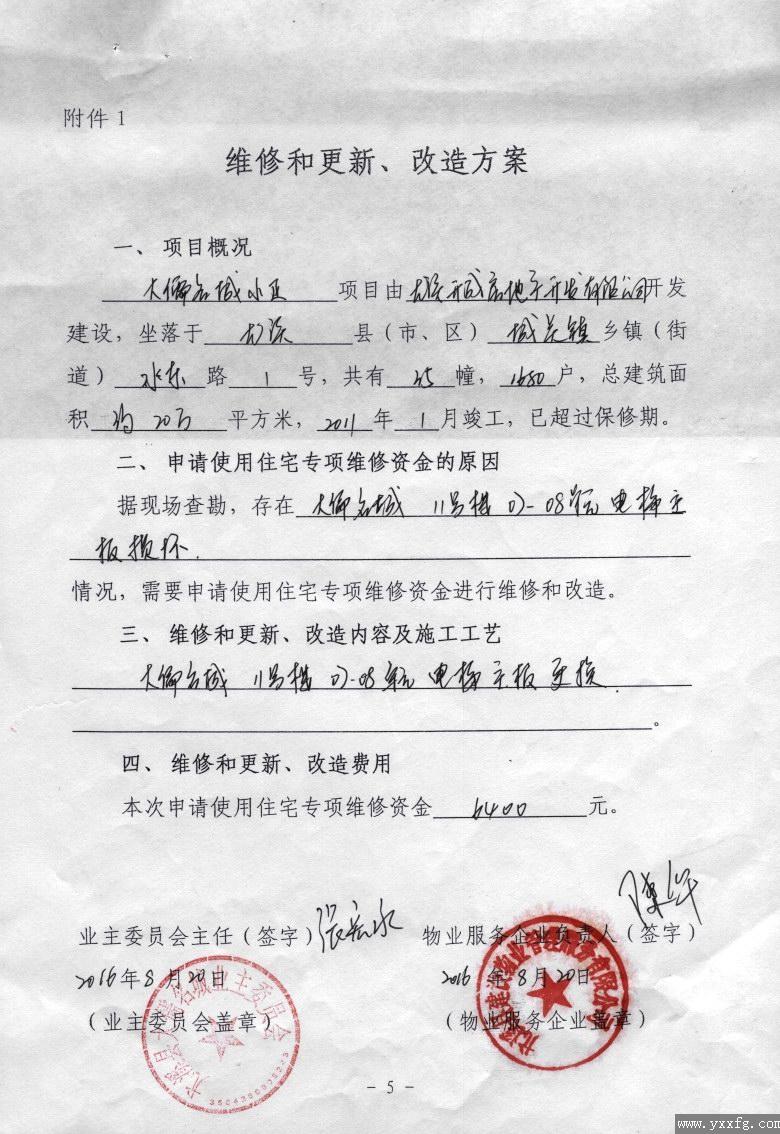 附件1
维修和更新、改造方案
一、项目概况
大儒名城小区 项目由 尤溪开成房地产开发有限公司 开发
建设，坐落于 尤溪 县（市、区） 城关镇 乡镇（街
道） 水东 路 1 号，共有 35 幢， 1680 户，总建筑面
积 约20万 平方米， 2011 年 1 月竣工，已超过保修期。
二、申请使用住宅专项维修资金的原因
据现场查勘，存在 大儒名城 11号楼 07-08单元 电梯主
板损坏.
情况，需要申请使用住宅专项维修资金进行维修和改造。
三、维修和更新、改造内容及施工工艺
大儒名城 11号楼 07-08单元 电梯主板更换.
。
四、维修和更新、改造费用
本次申请使用住宅专项维修资金 6400 元。
业主委员会主任（签字） 物业服务企业负责人（签字）
2016年8月20日 2016年8月20日
（业主委员会盖章） （物业服务企业盖章）
尤溪县大儒名城业主委员会
- 5 -
www.yxxfg.com